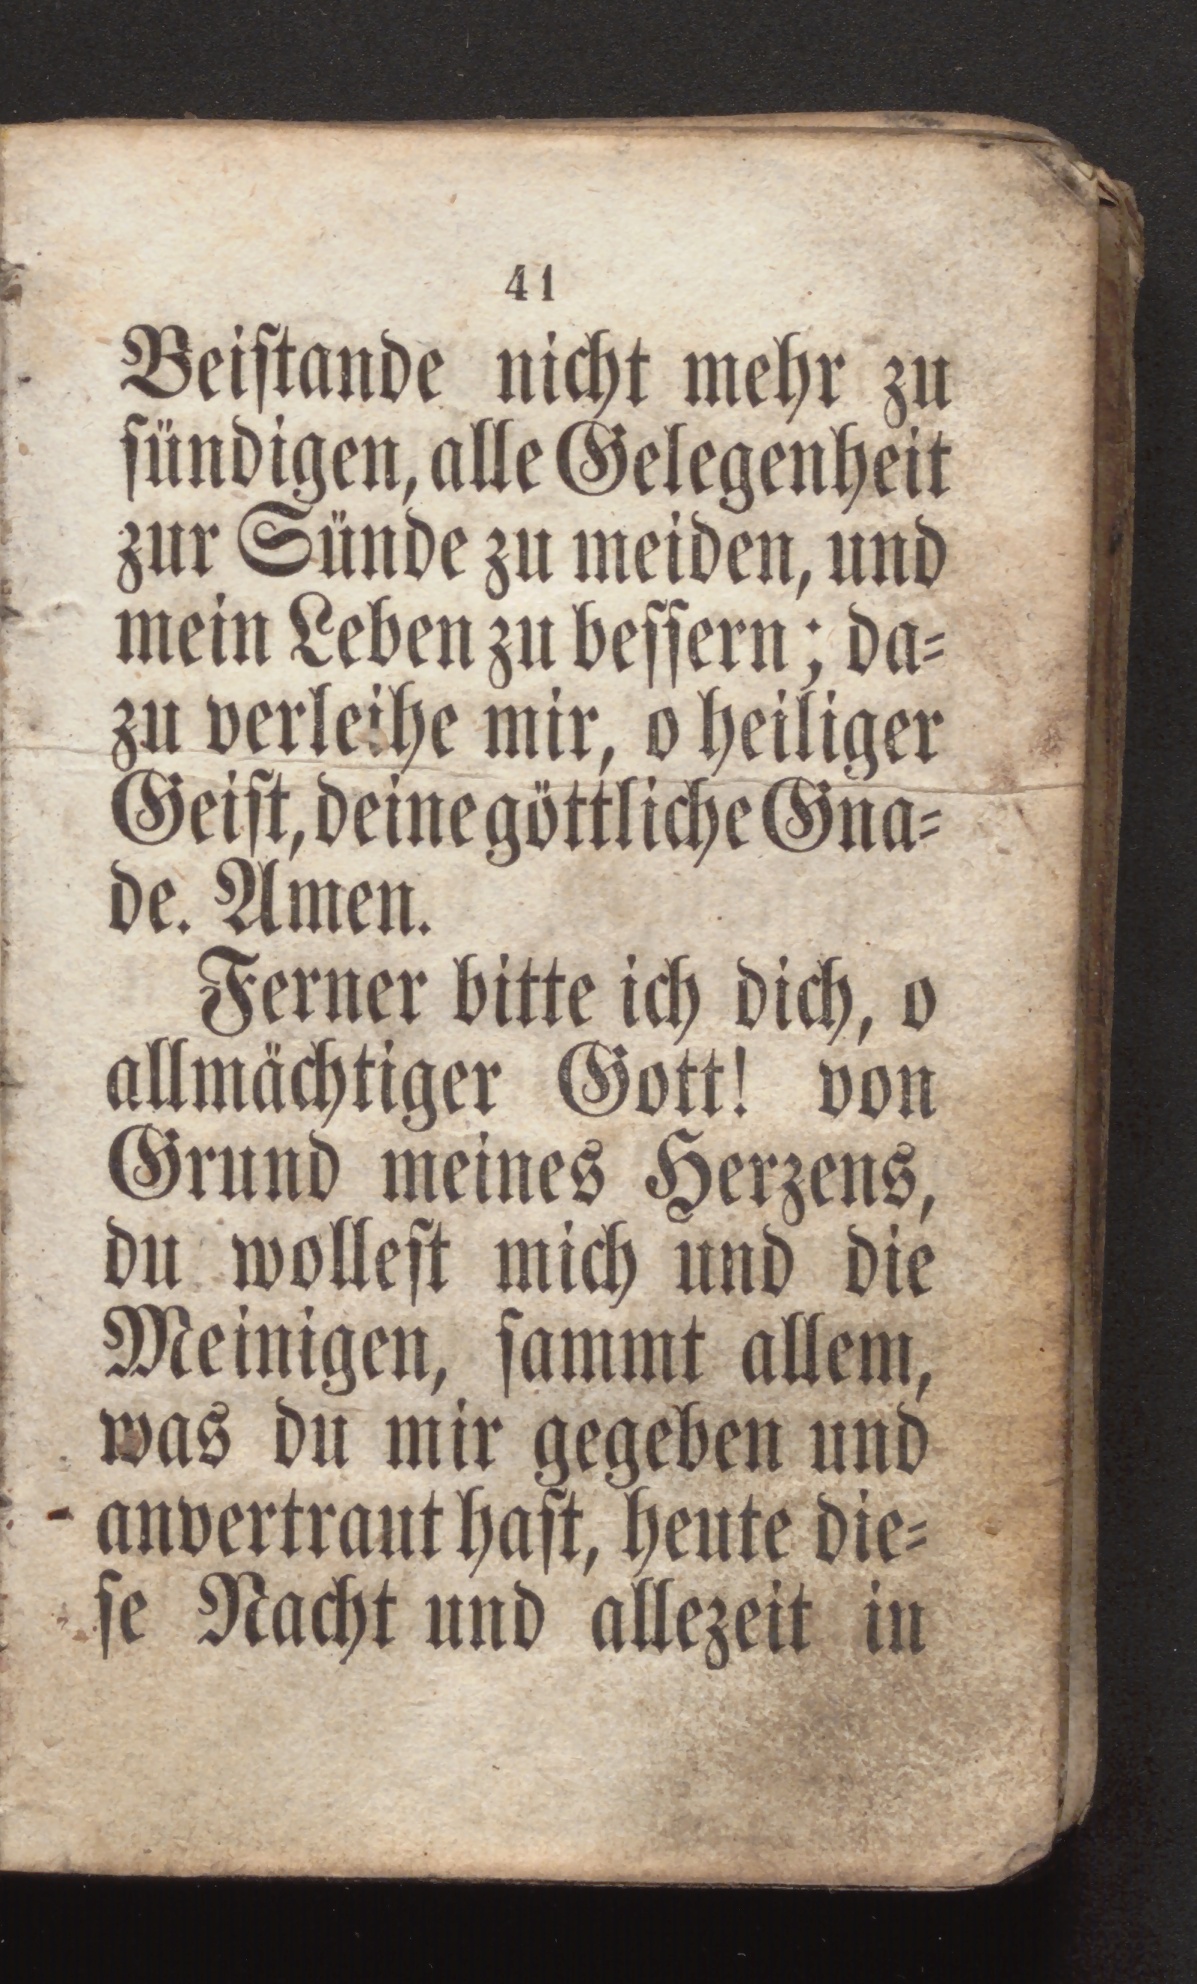 41
Beiſtande nicht mehr zu
ſündigen, alle Gelegenheit
zur Sünde zu meiden, und
mein Leben zu beſſern; da⸗
zu verleihe mir, o heiliger
Geiſt, deine göttliche Gna⸗
de. Amen.
Ferner bitte ich dich, o
allmächtiger Gott! von
Grund meines Herzens,
du wolleſt mich und die
Meinigen, ſammt allem,
was du mir gegeben und
anvertraut haſt, heute die⸗
ſe Nacht und allezeit in